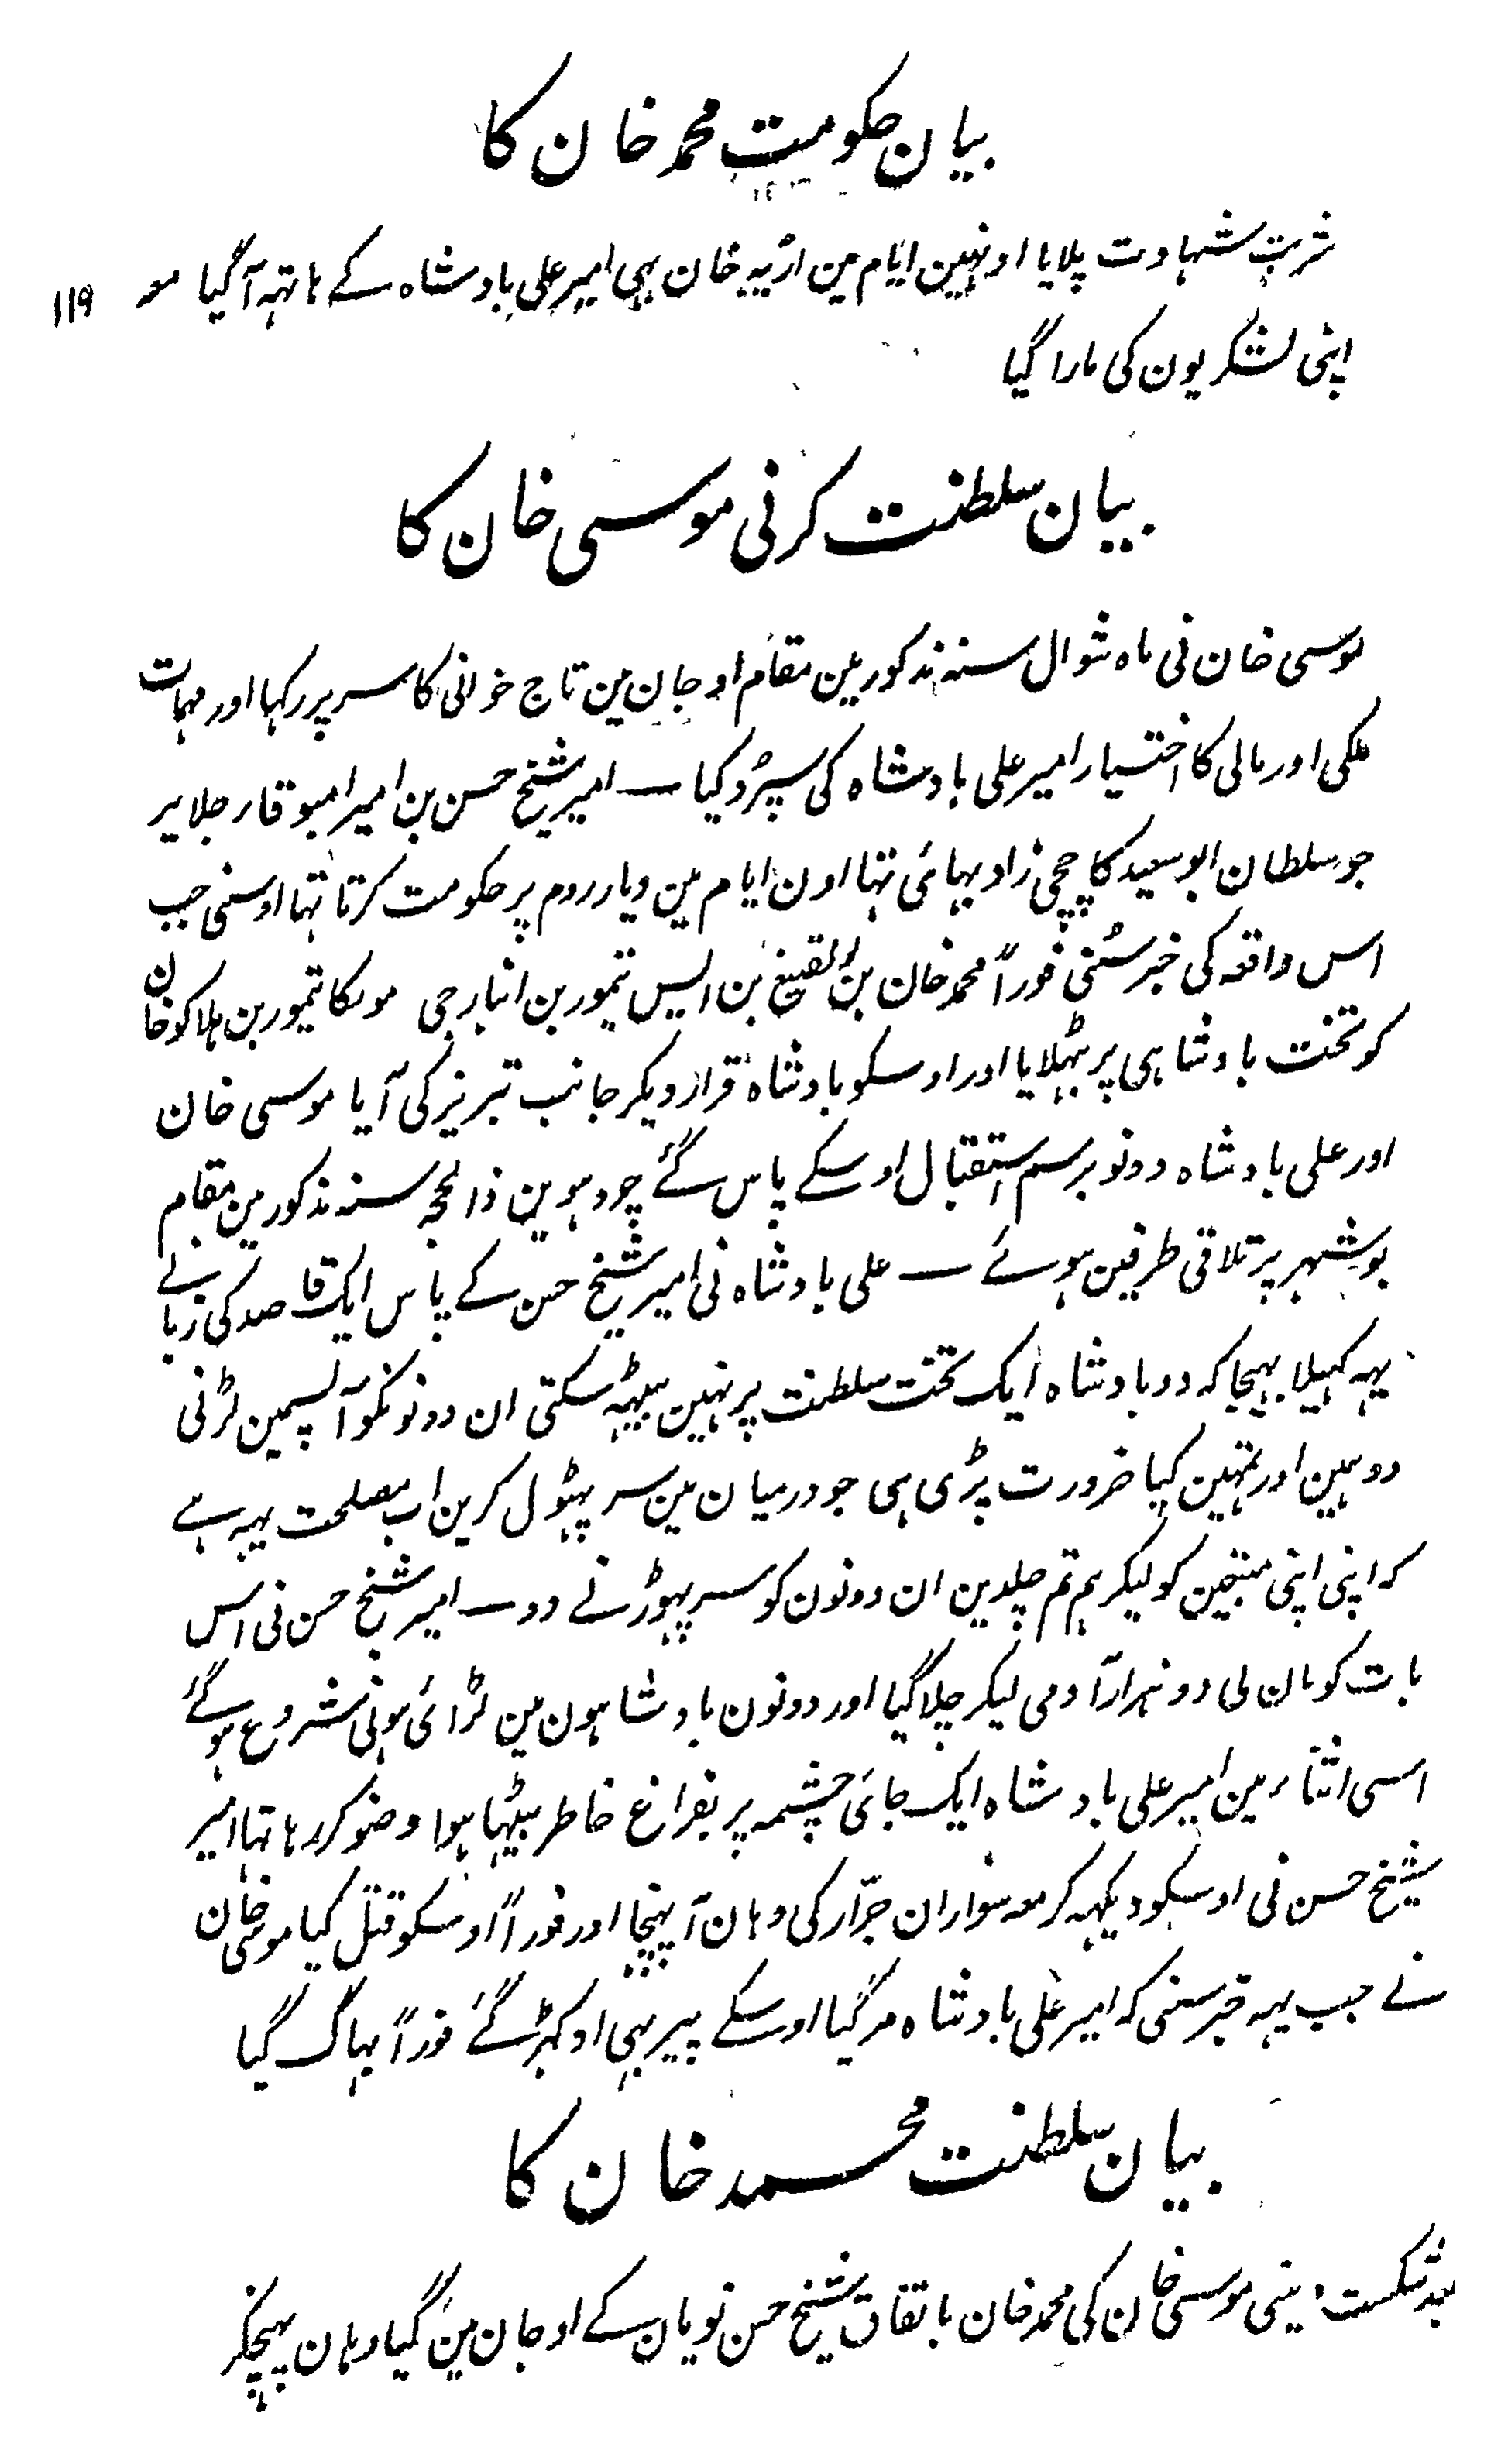 بیان حکومت محمد خان کا
شربت شہادت پلایا اونہین ایام مین ارپہ خان بہی امیر علی بادشاہ کے ہاتہہ آگیا معہ ۱۱۹
اپنی لشکریون کی مارا گیا
بیان سلطنت کرنی موسی خان کا
موسی خان نی ماہ شوال سنہ مذکور مین مقام اوجان مین تاج خوانی کا سر پر رکہا اور مہمات
ملکی اور مالی کا اختیار امیر علی بادشاہ کی سپرد کیا — امیر شیخ حسن بن امیر امبوقار جلایر
جو سلطان ابو سعید کا چچی زاد بہائی تہا اون ایام مین دیار روم پر حکومت کرتا تہا اوسنی جب
اس واقعہ کی خبر سُنی فوراً محمد خان بن بن ایس تیمور بن انبارجی موںکا تیمور بن ہلاکو خان
کو تخت بادشاہی پر بٹہلایا اور اوسکو بادشاہ قرار دیکر جانب تبریز کی آیا موسی خان
اور علی بادشاہ دونو برسم استقبال اوسکے پاس گئے چودہوین ذالحجہ سنہ مذکور مین مقام
بوشہر پر تلاقی طرفین ہوئے — علی بادشاہ نی امیر شیخ حسن کے پاس ایک قاصد کی زبانے
یہہ کہیلا بہیجا کہ دو بادشاہ ایک تخت سلطنت پر نہین بیٹہہ سکتی ان دونونکو آپسمین لڑنی
دو ہمین اور تمہین کیا ضرورت پڑی ہی جو درمیان مین سر پہٹول کرین اب مصلحت یہہ ہے
کہ اپنی اپنی متبعین کو لیکر ہم تم چلدین ان دونون کو سر پہوڑنے دو — امیر شیخ حسن نی اس
بات کو مان لی دو ہزار آدمی لیکر چلا گیا اور دونون بادشاہون مین لڑائی ہونی شروع ہو گئے
اسی اثناء مین امیر علی بادشاہ ایک جائی چشمہ پر بفراغ خاطر بیٹہا ہوا وضو کر رہا تہا امیر
شیخ حسن نی اوسکو دیکہہ کر معہ سواران جرّار کی وہان آ پہنچا اور فوراً اوسکو قتل کیا موسی خان
نے جب یہہ خبر سنی کہ امیر علی بادشاہ مر گیا اوسکے پیر بہی اوکہڑ گئے فوراً بہاگ گیا
بیان سلطنت محمد خان کا
بعد شکست ینی موسی خان کی محمد خان باتفاق شیخ حسن نویان کے اوجان مین گیا وہان پہنچکر